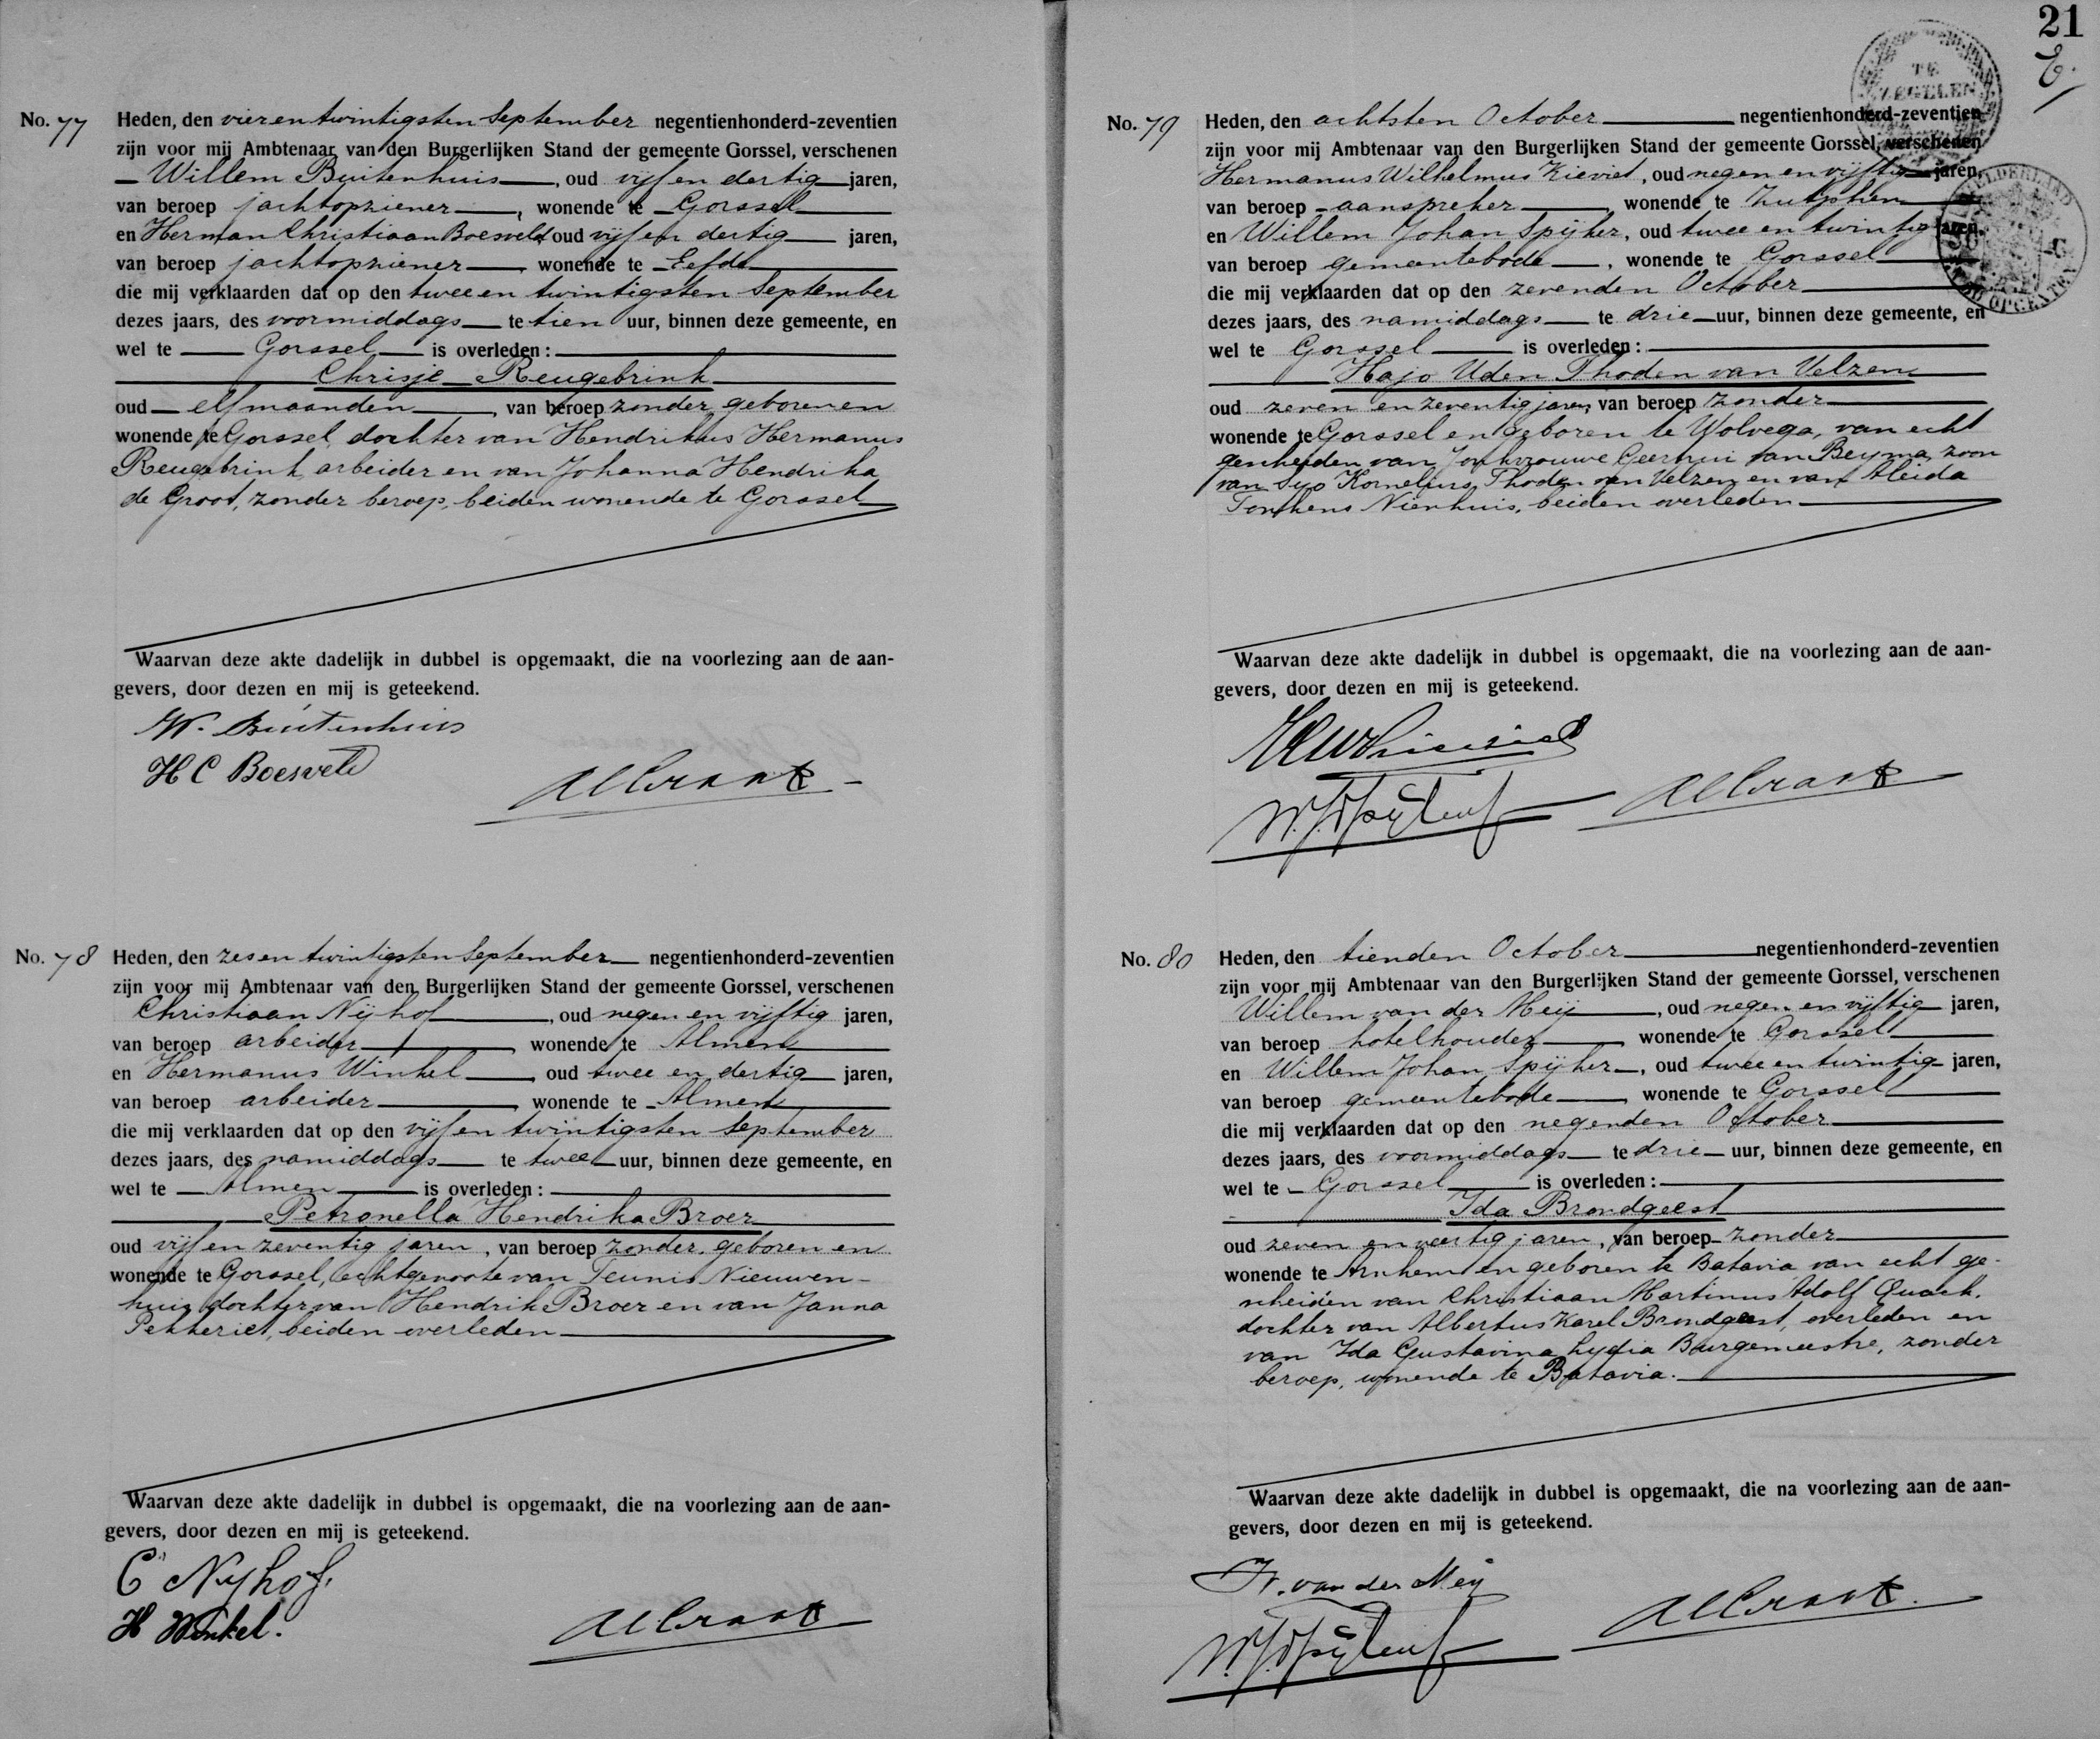 No. 77 Heden, den vier en twintigsten September negentienhonderd-zeventien
zijn voor mij Ambtenaar van den Burgerlijken Stand der gemeente Gorssel, verschenen
Willem Buitenhuis, oud vijf en dertig jaren,
van beroep jachtopziener, wonende te Gorssel
en Herman Christiaan Boesveld oud vijf en dertig jaren,
van beroep jachtopziener wonende te Eefde
die mij verklaarden dat op den twee en twintigsten September
dezes jaars, des voormiddags te tien uur, binnen deze gemeente, en
wel te Gorssel is overleden:
Chrisje Reugebrink
oud elf maanden, van beroep zonder, geboren en
wonende te Gorssel, dochter van Hendrikus Hermanus
Reugebrink arbeider en van Johanna Hendrika
de Groot, zonder beroep, beiden wonende te Gorssel
Waarvan deze akte dadelijk in dubbel is opgemaakt, die na voorlezing aan de aan-
gevers, door dezen en mij is geteekend.
W. Buitenhuis
H C Boesveld
No. 78 Heden, den zes en twintigsten September negentienhonderd-zeventien
zijn voor mij Ambtenaar van den Burgerlijken Stand der gemeente Gorssel, verschenen
Christiaan Nijhof, oud negen en vijftig jaren,
van beroep arbeider wonende te Almen
en Hermanus Winkel, oud twee en dertig jaren,
van beroep arbeider wonende te Almen
die mij verklaarden dat op den vijf en twintigsten September
dezes jaars, des namiddags te twee uur, binnen deze gemeente, en
wel te Almen is overleden:
Petronella Hendrika Broer
oud vijf en zeventig jaren, van beroep zonder, geboren en
wonende te Gorssel, echtgenoote van Teunis Nieuwen-
huis dochter van Hendrik Broer en van Janna
Pekkeriet, beiden overleden
Waarvan deze akte dadelijk in dubbel is opgemaakt, die na voorlezing aan de aan-
gevers, door dezen en mij is geteekend.
C Nyhof.
H Winkel.
21
TE ZEGELEN
GELDERLAND
No. 79 Heden, den achtsten October negentienhonderd-zeventien
zijn voor mij Ambtenaar van den Burgerlijken Stand der gemeente Gorssel, verschenen
Hermanus Wilhelmus Kieviet, oud negen en vijftig jaren,
van beroep aanspreker, wonende te Zutphen
en Willem Johan Spijker, oud twee en twintig jaren,
van beroep gemeentebode, wonende te Gorssel
die mij verklaarden dat op den zevenden October
dezes jaars, des namiddags te drie uur, binnen deze gemeente, en
wel te Gorssel is overleden:
Hajo Uden Thoden van Velzen
oud zeven en zeventig jaren, van beroep zonder
wonende te Gorssel en geboren te Wolvega, van echt
gescheiden van Jonkvrouwe van Beyma, zoon
van Syo Kornelius Thoden van Velzen en van Aleida
Tonkens Nienhuis, beiden overleden
Waarvan deze akte dadelijk in dubbel is opgemaakt, die na voorlezing aan de aan-
gevers, door dezen en mij is geteekend.
No. 80 Heden, den tienden October negentienhonderd-zeventien
zijn voor mij Ambtenaar van den Burgerlijken Stand der gemeente Gorssel, verschenen
Willem van der Meij, oud negen en vijftig jaren,
van beroep hotelhouder wonende te Gorssel
en Willem Johan Spijker, oud twee en twintig jaren,
van beroep gemeentebode wonende te Gorssel
die mij verklaarden dat op den negenden October
dezes jaars, des voormiddags te drie uur, binnen deze gemeente, en
wel te Gorssel is overleden:
Ida Brondgeest
oud zeven en veertig jaren, van beroep zonder
wonende te Arnhem en geboren te Batavia van echt ge-
scheiden van Christiaan Martinus Adolf Quack.
dochter van Albertus Karel Brondgeest, overleden en
van Ida Gustavina Lydia Burgemeestre, zonder
beroep, wonende te Batavia.
Waarvan deze akte dadelijk in dubbel is opgemaakt, die na voorlezing aan de aan-
gevers, door dezen en mij is geteekend.
W. van der Meij